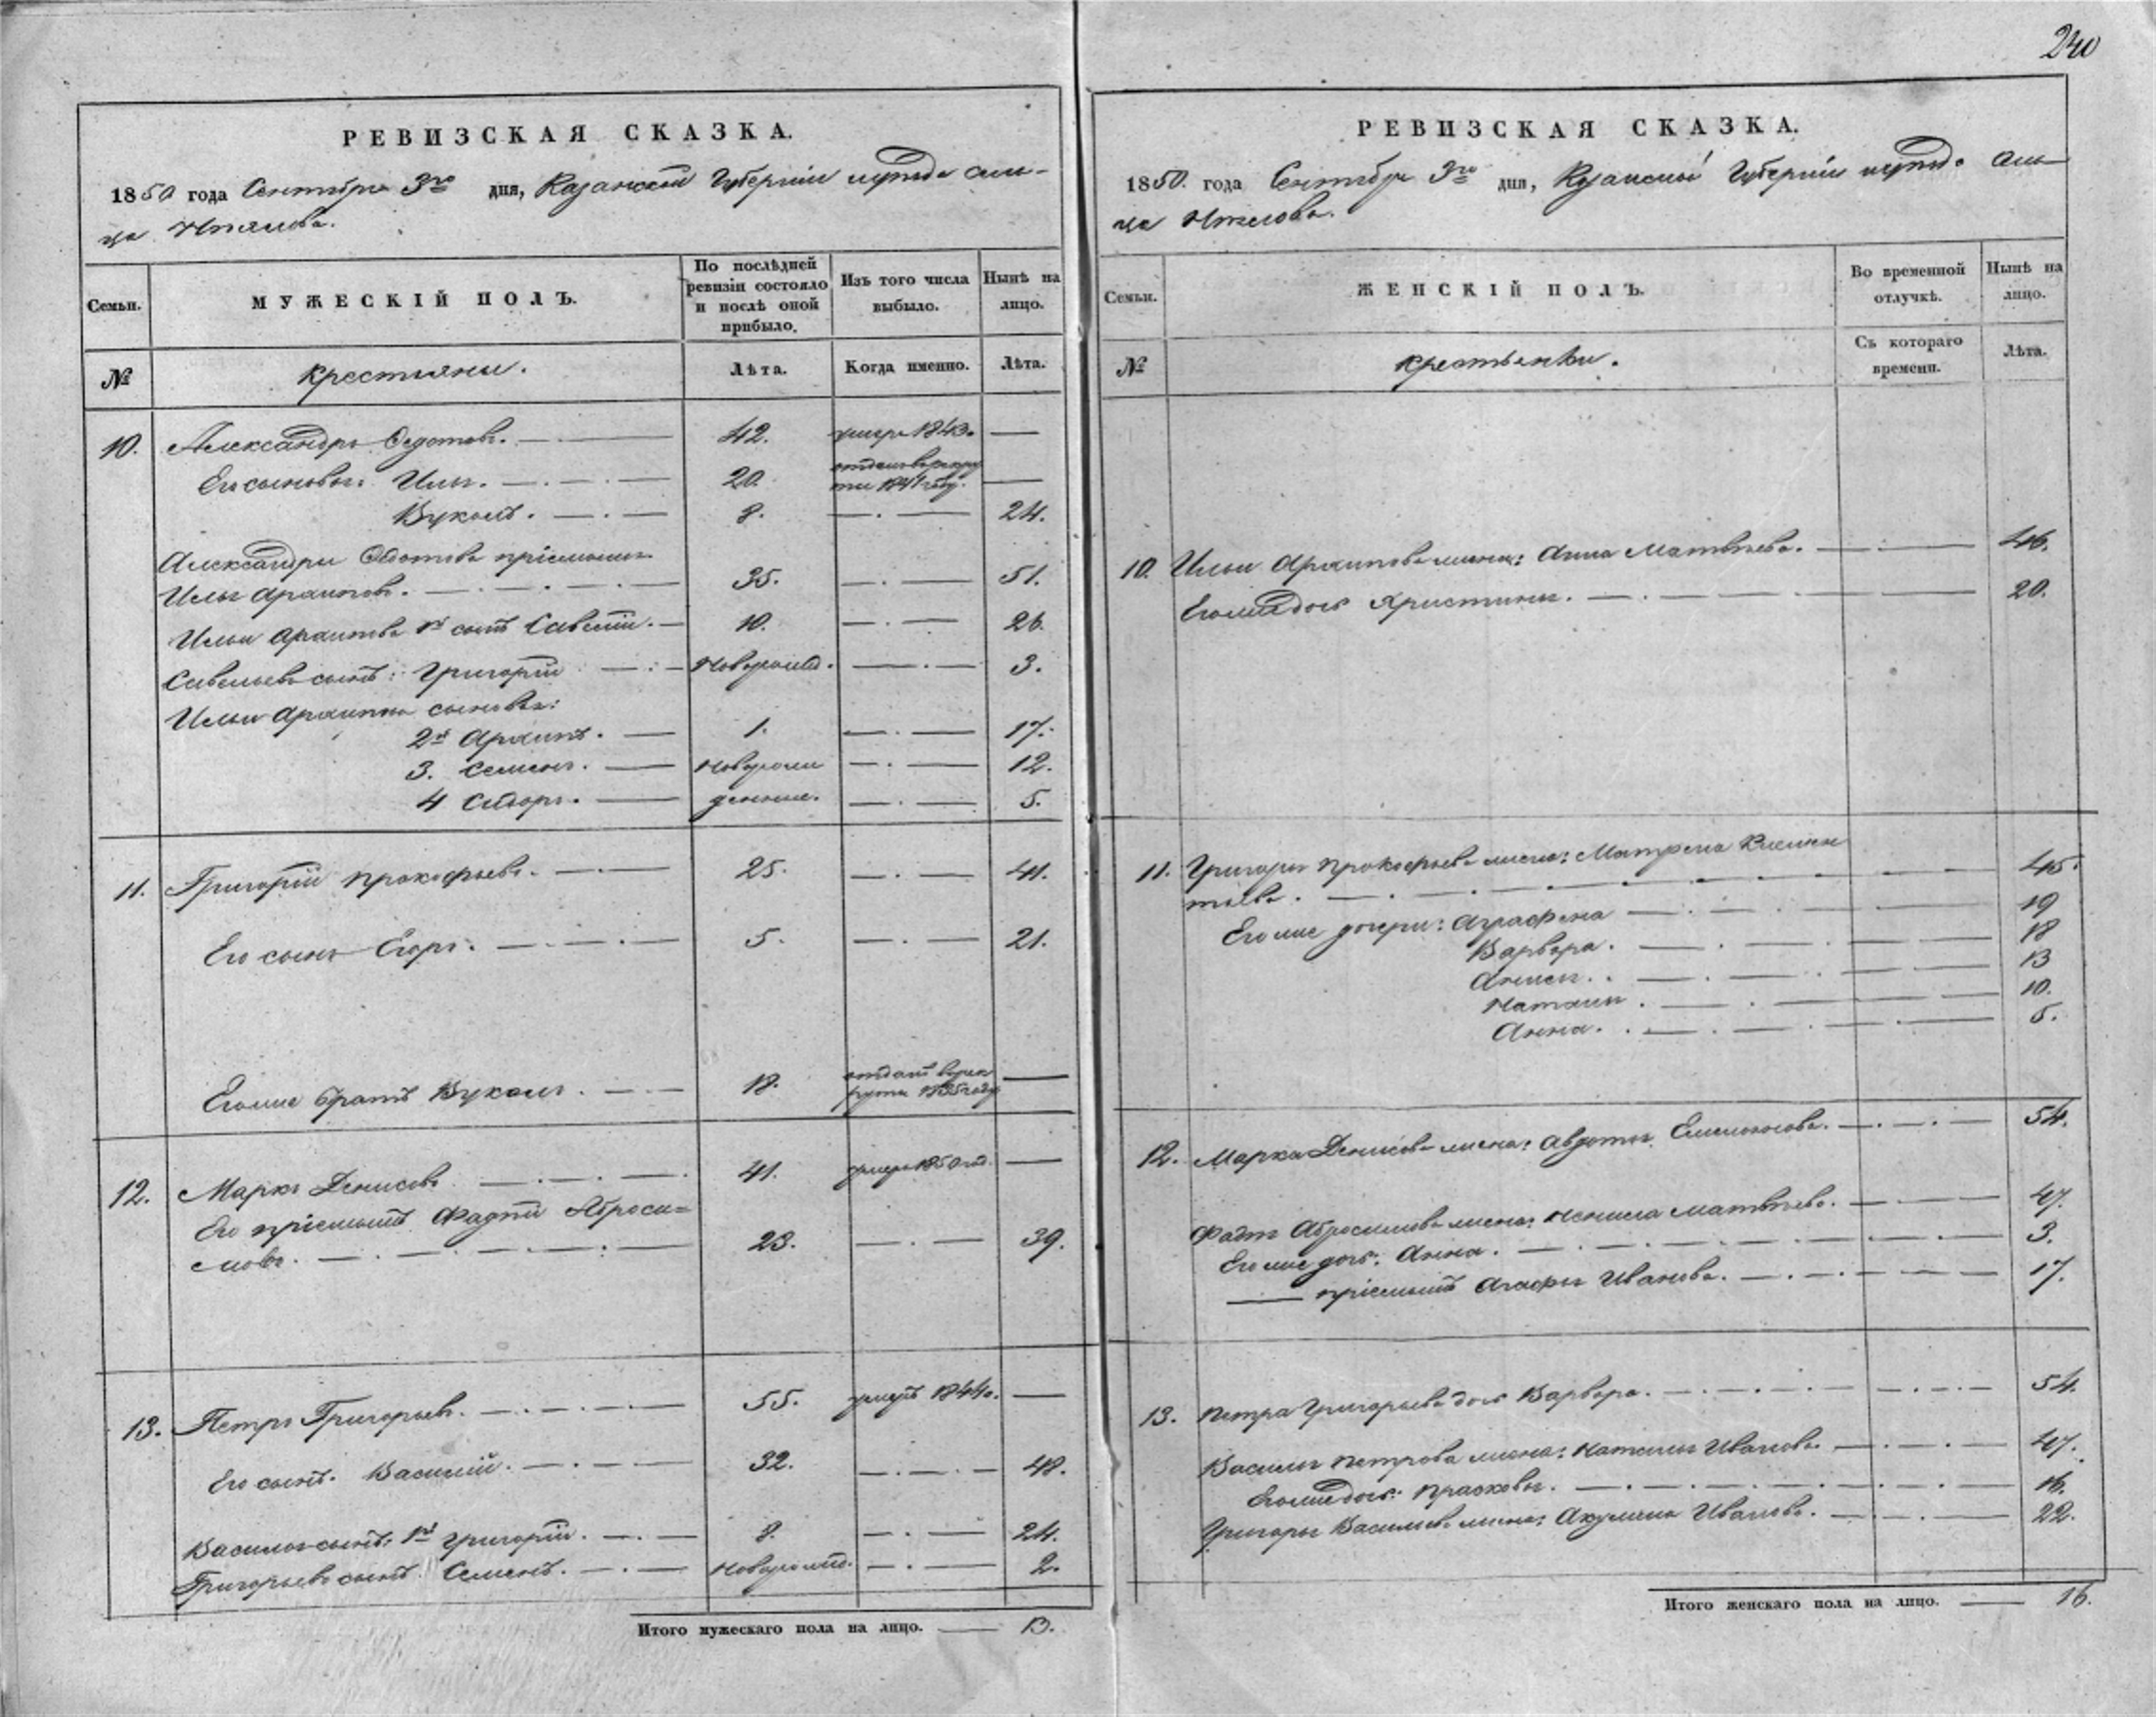 240
РЕВИЗСКАЯ СКАЗКА.
1850 года Сентября 3го дня, Казанской Губерніи уѣзда сель-
ца
Семьи.
МУЖЕСКІЙ ПОЛЪ.
По послѣдней ревизіи состояло и послѣ оной прибыло.
Изъ того числа выбыло.
Нынѣ на лицо.
№
Крестьяни.
Лѣта.
Когда именно.
Лѣта.
10. Александръ Ѳедотовъ. 42. умеръ 1843. —
Его сыновья: Илья. 20. 1841 году. —
Вуколъ. 8. — 24.
Александра Ѳедотова пріемышъ
Илья Архиповъ. 35. — 51.
Ильи Архипова 1й сынъ Савелій. 10. — 26.
Савельевъ сынъ: Григорій Новорожд. — 3.
Ильи Архипова сыновья:
2й Архипъ. 1. — 17.
3. Семенъ. Новорож — 12.
4 Сидоръ. денные. — 5.
11. Григорій Прокофьевъ. 25. — 41.
Его сынъ Егоръ. 5. — 21.
Его же братъ Вуколъ. 18. отданъ въ рек
руты 1835 году —
12. Маркъ Денисовъ 41. умеръ 1850 год. —
Его пріемышъ Фадѣй Аброси=
мовъ. 23. — 39.
13. Петръ Григорьевъ. 55. умеръ 1844 г. —
Его сынъ. Василій. 32. — 48.
Василья сынъ: 1й Григорій. 8. — 24.
Григорьевъ сынъ. Семенъ. Новорожд. — 2.
Итого мужескаго пола на лицо. — 13.
РЕВИЗСКАЯ СКАЗКА.
1850. года Сентября 3го дня, Казанской Губерніи уѣзда сель
ца
Семьи.
ЖЕНСКІЙ ПОЛЪ.
Во временной отлучкѣ.
Нынѣ на лицо.
№
Крестьянки.
Съ котораго времени.
Лѣта.
10. Ильи Архипова жена: Анна Матвѣева. 46.
Его же дочь Христинья. 20.
11. Григорья Прокофьева жена: Матрена Клемен
тьева. 45.
Его же дочери: Аграфена 19
Варвара. 18
Анисья. 13
Наталья. 10.
Анна. 5.
12. Марка Денисова жена: Авдотья Емельянова. 54.
Фадѣя Абросимова жена: Ненила Матвѣева. 47.
Его же дочь: Анна. 3.
— пріемышъ Агафья Иванова. 17.
13. Петра Григорьева дочь Варвара. 54.
Василья Петрова жена: Наталья Иванова. 47.
Его же дочь: Прасковья. 16.
Григорья Васильева жена: Акулина Иванова. 22.
Итого женскаго пола на лицо. — 16.